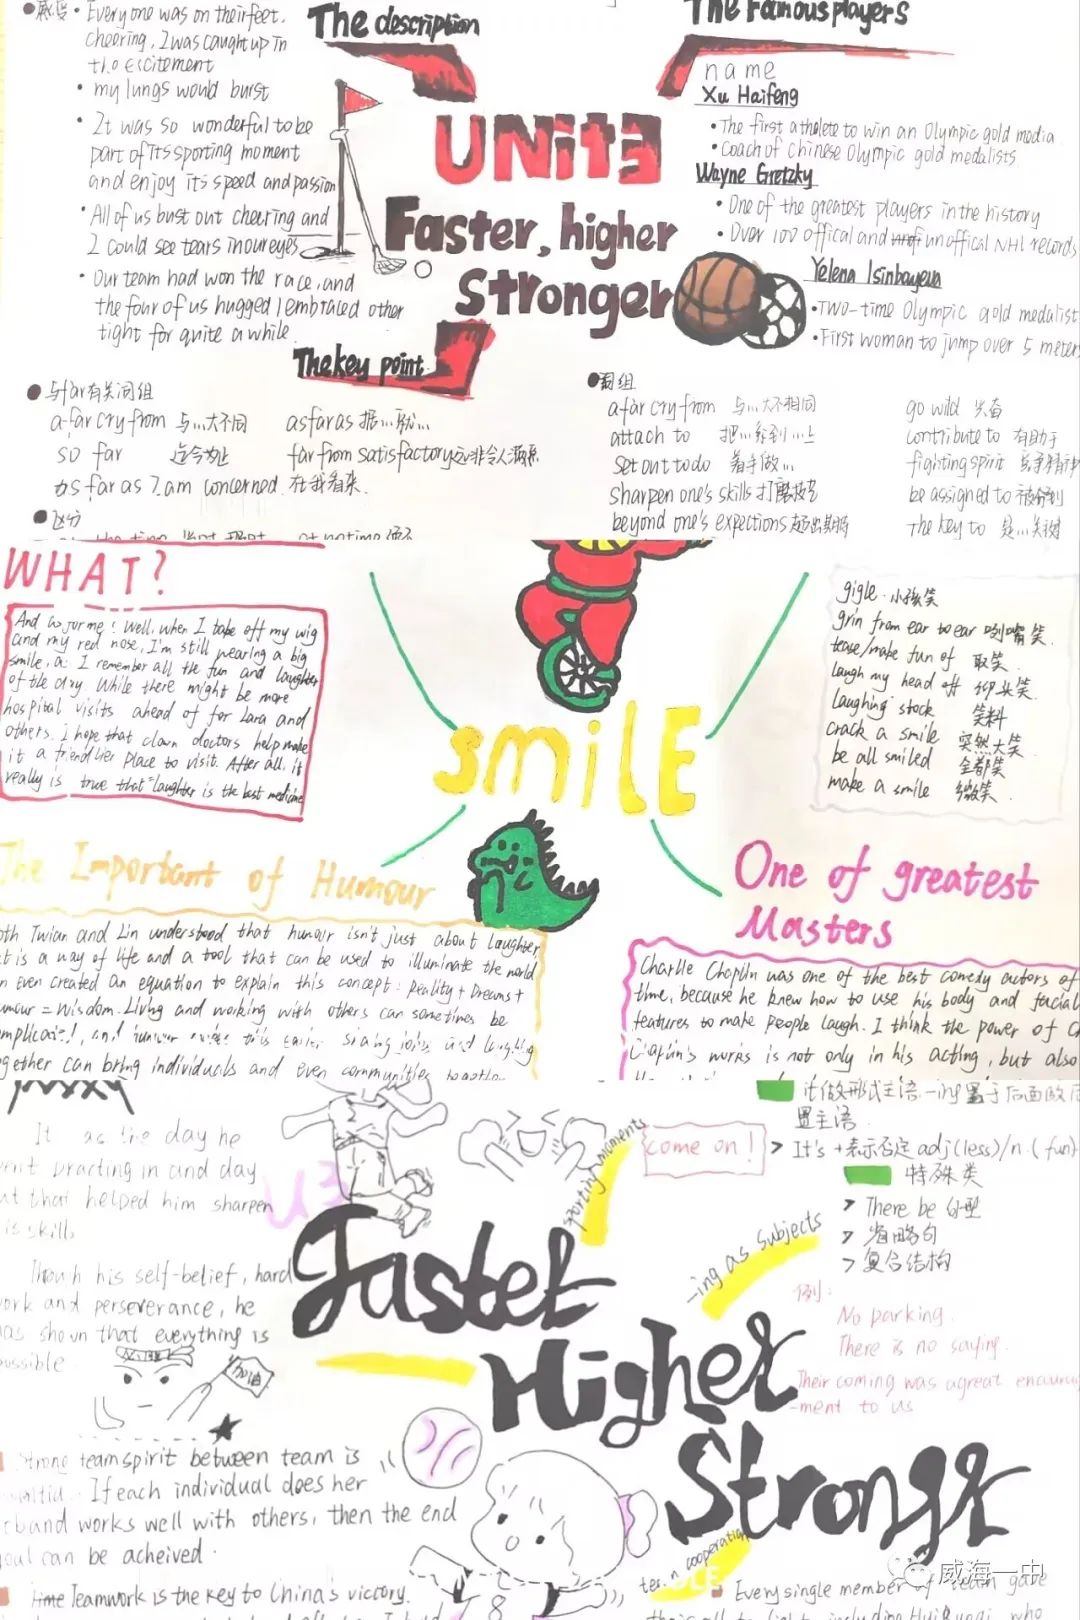 感受·Everyone was on their feet,
cheering, I was caught up in
the excitement
· my lungs would burst
· It was so wonderful to be
part of its sporting moment
and enjoy its speed and passion
· All of us bust out cheering and
I could see tears in our eyes
· Our team had won the race, and
the four of us hugged / embraced other
tight for quite a while.
The description
The Famous players
UNit3
Faster, higher
Stronger
name
Xu Haifeng
· The first athelete to win an Olympic gold media
· Coach of Chinese Olympic gold medalists
Wayne Gretzky
· One of the greatest players in the history
· Over 100 offical and unoffical NHL records
Yelena Isinbayeva
· Two-time Olympic gold medalist
· First woman to jump over 5 meter
The key point
与far有关词组
a far cry from 与…大不同
as far as 据…所…
so far 迄今为止
far from satisfactory 远非令人满意
as far as I am concerned 在我看来.
区分
at no time
词组
a far cry from 与…大不相同
go wild 兴奋
attach to 把…系到…上
contribute to 有助于
set out to do 着手做…
fighting spirit
sharpen one's skills 打磨技艺
be assigned to 被分到
beyond one's expections 超出期盼
The key to 是…关键
WHAT?
And as for me? Well, when I take off my wig
and my red nose, I'm still wearing a big
smile, as I remember all the fun and laughter
of the day While there might be more
hospital visits ahead of for Lara and
others. i hope that clown doctors help make
it a friendlier place to visit. After all, it
really is true that "laughter is the best medicine
SMiLE
gigle 小孩笑
grin from ear to ear 咧嘴笑
tease/make fun of 取笑
laugh my head off 仰头笑
laughing stock 笑料
crack a smile 突然大笑
be all smiled 全都笑
make a smile 微笑
The Important of Humour
oth Twian and Lin understood that humour isn't just about laughter
t is a way of life and a tool that can be used to illuminate the world
n even created an equation to explain this concept: Reality + Dreams +
umour = Wisdom. Living and working with others can sometimes be
mplicated, and humour makes this easier sharing jokes and laughing
gether can bring individuals and even communities together
One of greatest
Masters
Charlie Chaplin was one of the best comedy actors of
time, because he knew how to use his body and facial
features to make people laugh. I think the power of Ch
Chaplin's works is not only in his acting, but also
It as the day he
ent practing in and day
ut that helped him sharpen
is skills
Though his self-belief, hard
ork and perseverance, he
as shown that everything is
possible
加油
Strong teamspirit between team is
If each individual does her
band works well with others, then the end
goal can be acheived.
Teamwork is the key to China's victory.
U3
Faster
Higher
Stronger
sporting moments
come on!
-ing as subjects
cooperation
it做形式主语,-ing置于后面做后
置主语
> It's +表示否定 adj(less)/n.(fun)
特殊类
> There be 句型
> 省略句
> 复合结构
例:
No parking.
There is no saying.
Their coming was agreat encourage
-ment to us
Every single member of team gave
威海一中